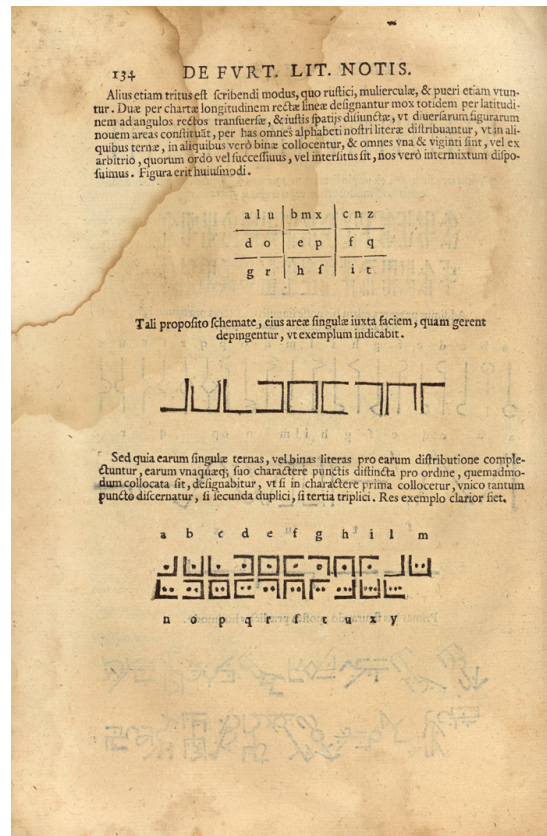 134 DE FVRT. LIT. NOTIS.
Alius etiam tritus est scribendi modus, quo rustici, mulierculæ, & pueri etiam vtun-
tur. Duæ per chartæ longitudinem rectæ lineæ designantur mox totidem per latitudi-
nem ad angulos rectos transuersæ, & iustis spatijs disiunctæ, vt diuersarum figurarum
nouem areas constituāt, per has omnes alphabeti nostri literæ distribuantur, vt in ali-
quibus ternæ, in aliquibus verò binæ collocentur, & omnes vna & viginti sint, vel ex
arbitrio, quorum ordo vel successiuus, vel intersitus sit, nos verò intermixtum dispo-
suimus. Figura erit huiusmodi.
a l u b m x c n z
d o e p f q
g r h ſ i t
Tali proposito schemate, eius areæ singulæ iuxta faciem, quam gerent
depingentur, vt exemplum indicabit.
Sed quia earum singulæ ternas, vel binas literas pro earum distributione comple-
ctuntur, earum vnaquæq; suo charactere punctis distincta pro ordine, quemadmo-
dum collocata sit, designabitur, vt si in charactere prima collocetur, vnico tantum
puncto discernatur, si secunda duplici, si tertia triplici. Res exemplo clarior fiet.
a b c d e f g h i l m
n o p q r ſ t u x y